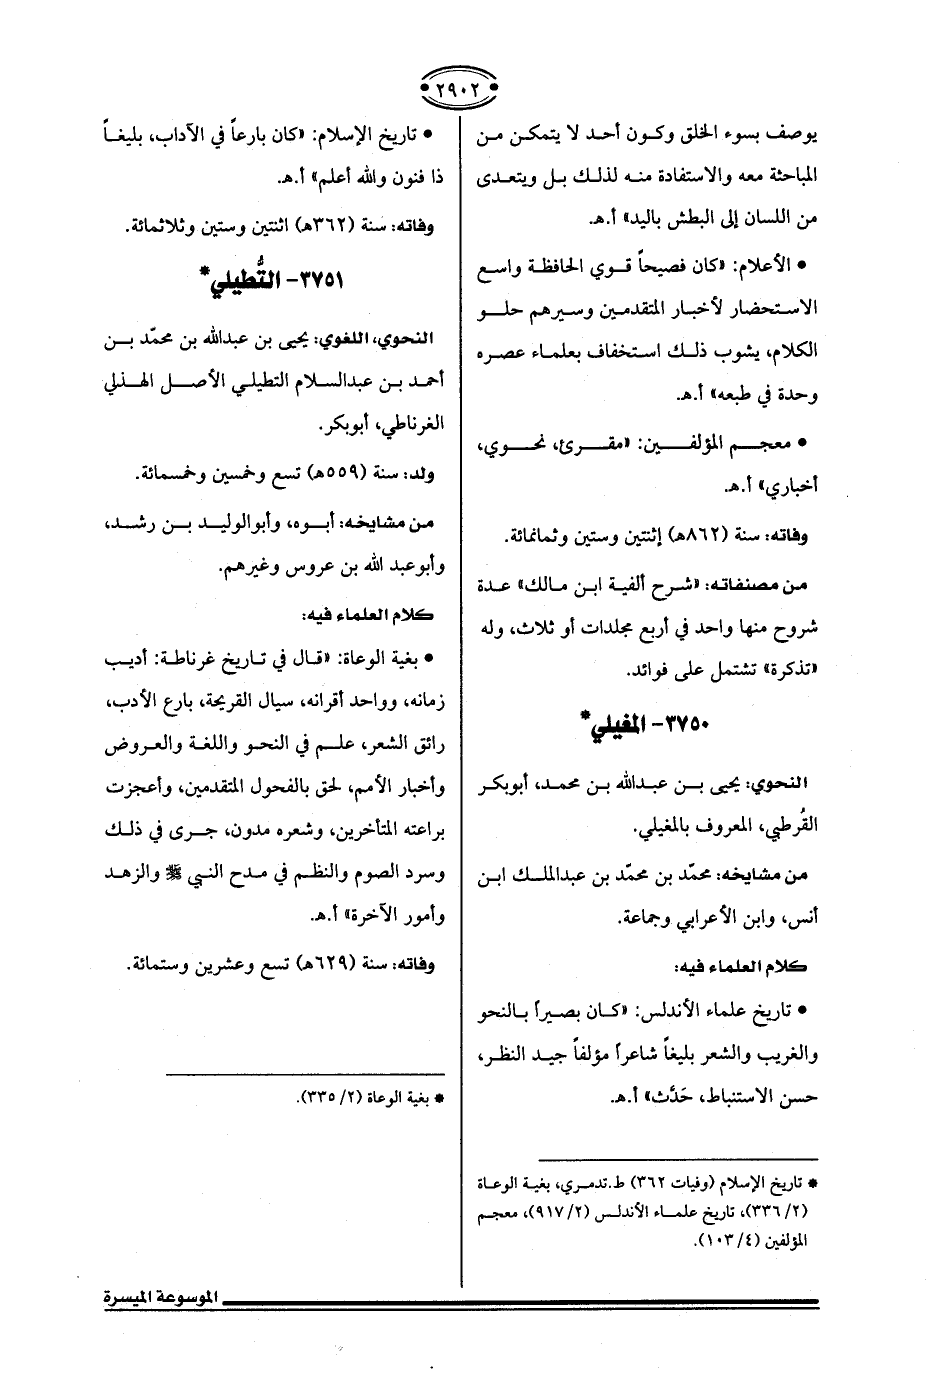 ٢٩٠٢
يوصف بسوء الخلق وكون أحد لا يتمكن من
المباحثة معه والاستفادة منه لذلك بل ويتعدى
من اللسان إلى البطش باليد» أ.هـ.
• الأعلام: «كان فصيحاً قوي الحافظة واسع
الاستحضار لأخبار المتقدمين وسيرهم حلو
الكلام، يشوب ذلك استخفاف بعلماء عصره
وحدة في طبعه» أ.هـ.
• معجم المؤلفين: «مقرئ، نحوي،
أخباري» أ.هـ.
وفاته: سنة (٨٦٢هـ) إثنتين وستين وثمانمائة.
من مصنفاته: «شرح ألفية ابن مالك» عدة
شروح منها واحد في أربع مجلدات أو ثلاث، وله
«تذكرة» تشتمل على فوائد.
٣٧٥٠- المغيلي*
النحوي: يحيى بن عبدالله بن محمد، أبوبكر
القُرطبي، المعروف بالمغيلي.
من مشايخه: محمّد بن محمّد بن عبدالملك ابن
أنس، وابن الأعرابي وجماعة.
كلام العلماء فيه:
• تاريخ علماء الأندلس: «كان بصيراً بالنحو
والغريب والشعر بليغاً شاعراً مؤلفاً جيد النظر،
حسن الاستنباط، حَدَّث» أ.هـ.
* تاريخ الإسلام (وفيات ٣٦٢) ط.تدمري، بغية الوعاة
(٢/ ٣٣٦)، تاريخ علماء الأندلس (٢/ ٩١٧)، معجم
المؤلفين (٤/ ١٠٣).
• تاريخ الإسلام: «كان بارعاً في الآداب، بليغاً
ذا فنون والله أعلم» أ.هـ.
وفاته: سنة (٣٦٢هـ) اثنتين وستين وثلاثمائة.
٣٧٥١- التُّطيلي*
النحوي، اللغوي: يحيى بن عبدالله بن محمّد بن
أحمد بن عبدالسلام التطيلي الأصل الهذلي
الغرناطي، أبوبكر.
ولد: سنة (٥٥٩هـ) تسع وخمسين وخمسمائة.
من مشايخه: أبوه، وأبوالوليد بن رشد،
وأبوعبد الله بن عروس وغيرهم.
كلام العلماء فيه:
• بغية الوعاة: «قال في تاريخ غرناطة: أديب
زمانه، وواحد أقرانه، سيال القريحة، بارع الأدب،
رائق الشعر، علم في النحو واللغة والعروض
وأخبار الأمم، لحق بالفحول المتقدمين، وأعجزت
براعته المتأخرين، وشعره مدون، جرى في ذلك
وسرد الصوم والنظم في مدح النبي ﷺ والزهد
وأمور الآخرة» أ.هـ.
وفاته: سنة (٦٢٩هـ) تسع وعشرين وستمائة.
* بغية الوعاة (٢/ ٣٣٥).
الموسوعة الميسرة